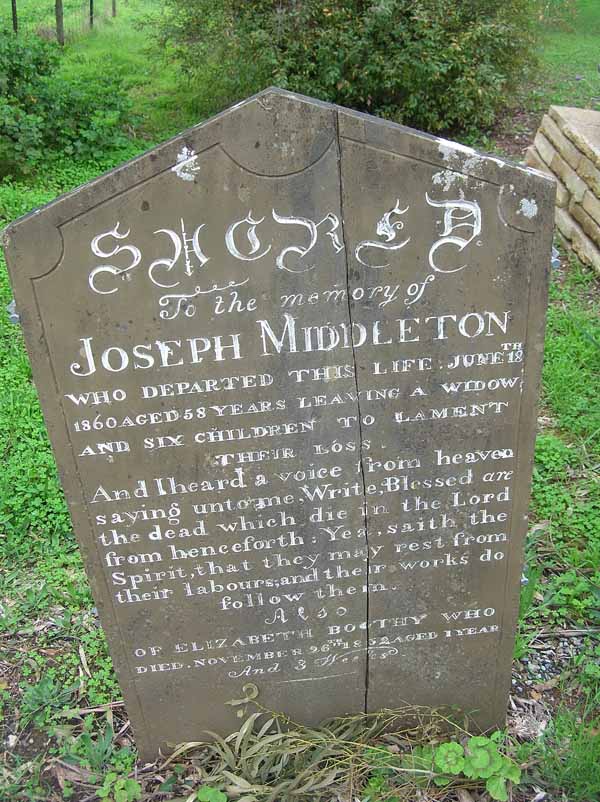 SACRED
To the memory of
JOSEPH MIDDLETON
WHO DEPARTED THIS LIFE JUNE 18TH
1860 AGED 58 YEARS LEAVING A WIDOW
AND SIX CHILDREN TO LAMENT
THEIR LOSS.
And I heard a voice from heaven
saying unto me, Write, Blessed are
the dead which die in the Lord
from henceforth: Yea, saith the
Spirit, that they may rest from
their labours; and their works do
follow them.
Also
OF ELIZABETH BOOTHY WHO
DIED. NOVEMBER 26TH 1852 AGED 1 YEAR
And 3 Weeks